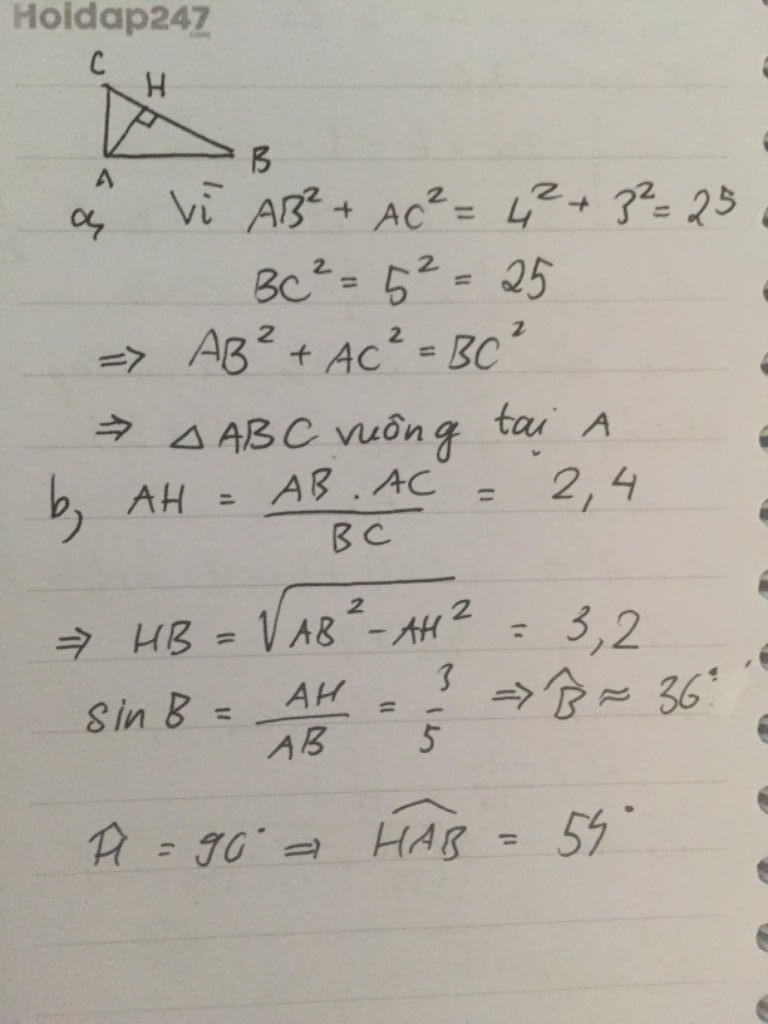 Hoidap247
.com
C
H
A
B
a, Vì AB² + AC² = 4² + 3² = 25
BC² = 5² = 25
=> AB² + AC² = BC²
=> △ABC vuông tại A
b, AH = AB . AC / BC = 2,4
=> HB = √(AB² - AH²) = 3,2
sin B = AH / AB = 3 / 5 => B̂ ≈ 36°
Ĥ = 90° => HAB̂ = 54°